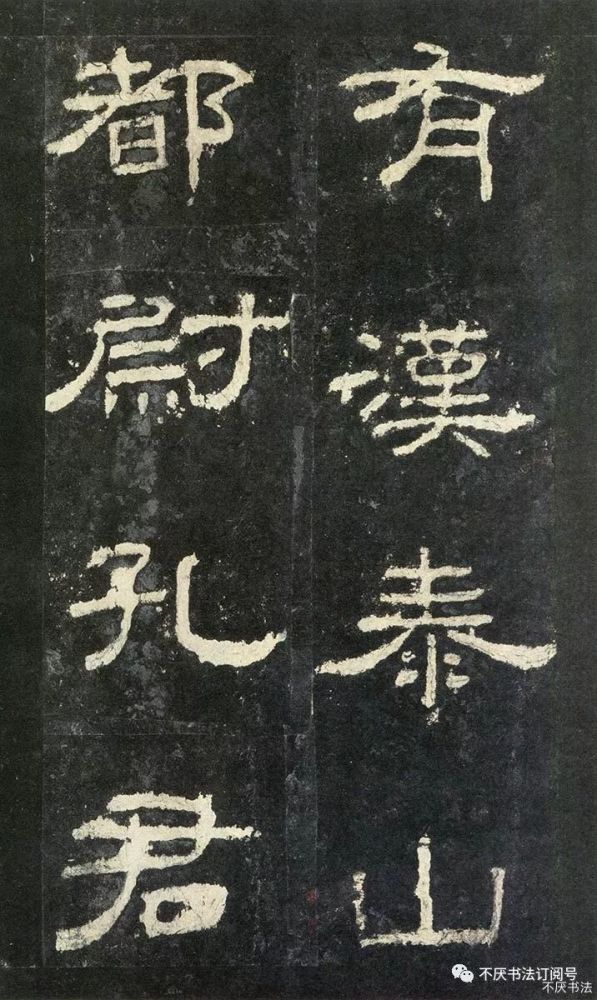 有漢泰山
都尉孔君
不厌书法订阅号
不厌书法